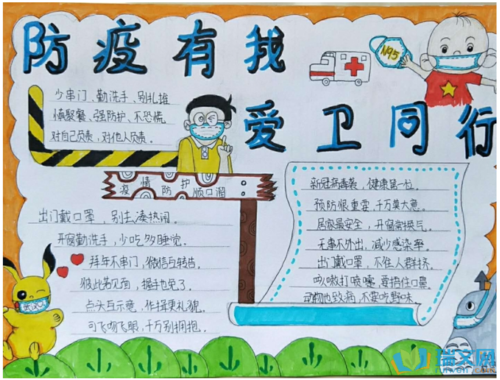 防疫有我
N95
爱卫同行
少串门、勤洗手、别扎堆
慎聚餐、强防护、不恐慌
对自己负责、对他人负责.
疫情防护顺口溜
出门戴口罩，别凑热闹.
开窗勤洗手，少吃多睡觉.
拜年不串门，微信与转告.
彼此若见面，握手也免了.
点头互示意，作揖更礼貌.
可飞吻飞眼，千万别拥抱.
新冠病毒袭，健康第一位.
预防很重要，千万莫大意.
居家最安全，开窗常换气.
无事不外出，减少感染率.
出门戴口罩，不在人群挤.
咳嗽打喷嚏，要捂住口鼻.
动物也致病，不要吃野味.